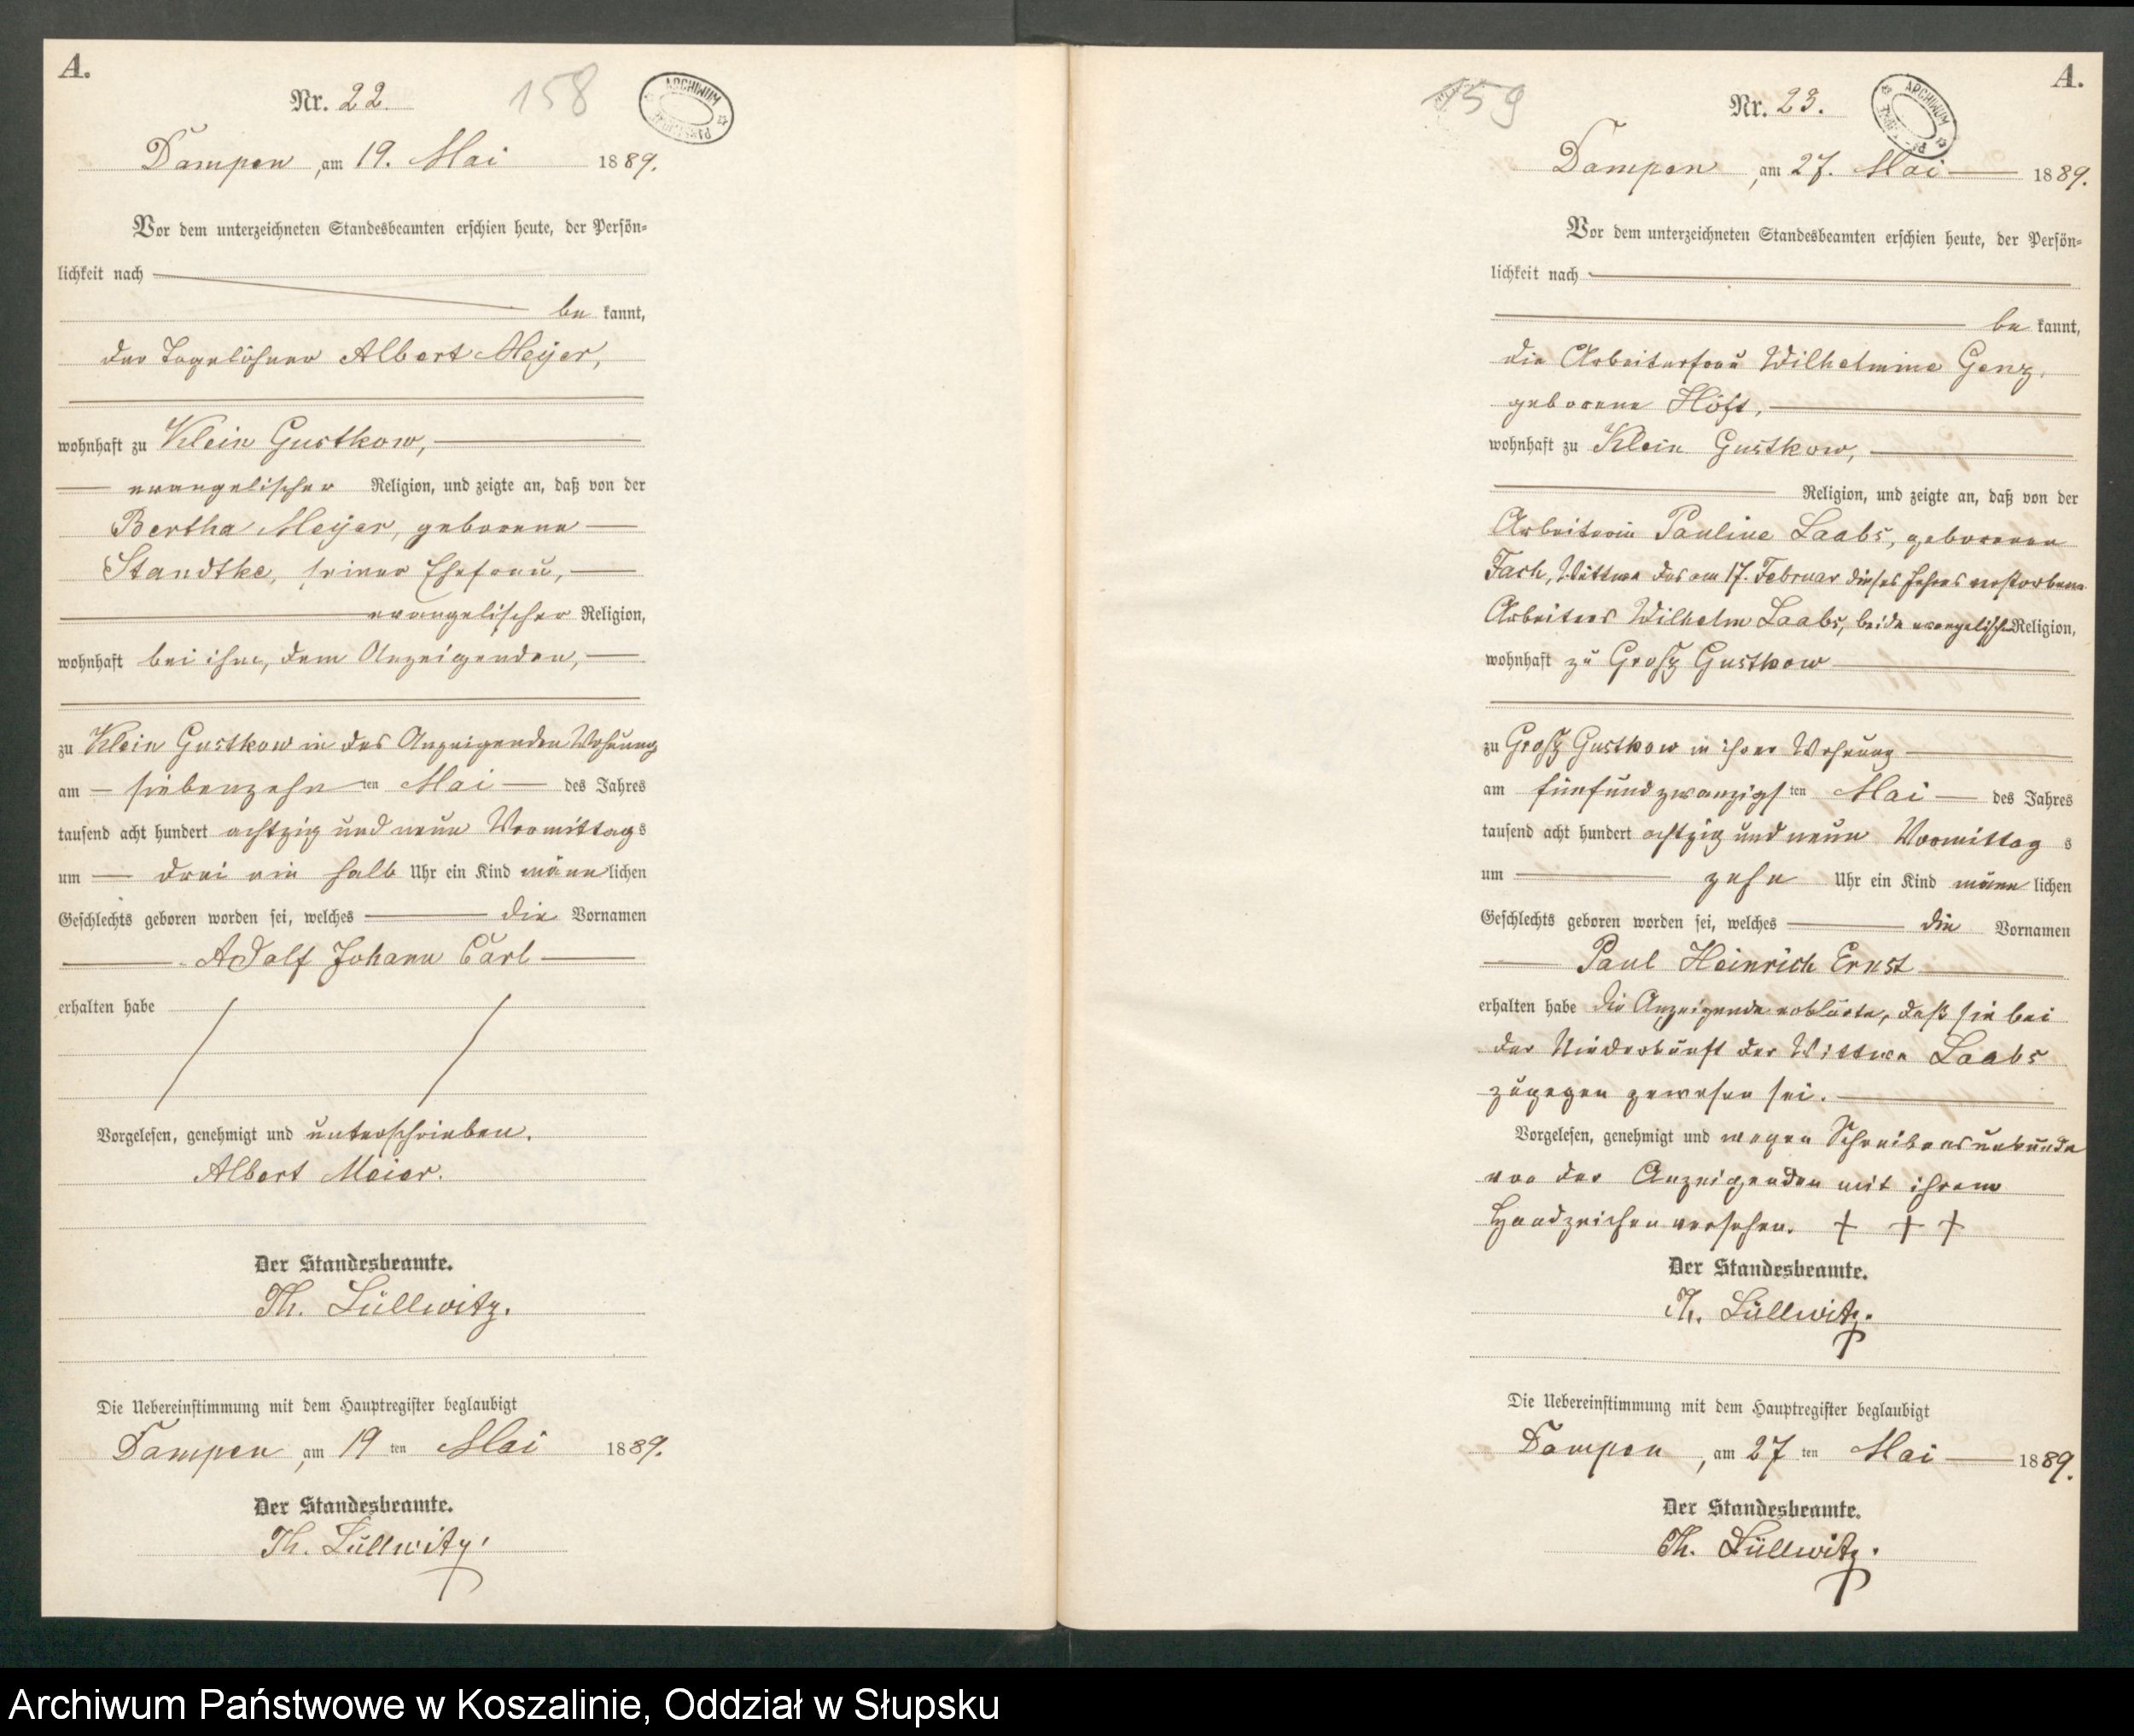 A.
Nr. 22
158
ARCHIWUM
Dampen, am 19. Mai 1889.
Vor dem unterzeichneten Standesbeamten erschien heute, der Persön=
lichkeit nach
be kannt,
der Tagelöhner Albert Meyer,
wohnhaft zu Klein Gustkow,
evangelischer Religion, und zeigte an, daß von der
Bertha Meyer, geborene
Standtke, seiner Ehefrau,
evangelischer Religion,
wohnhaft bei ihm, dem Anzeigenden,
zu Klein Gustkow in des Anzeigenden Wohnung
am siebenzehn ten Mai des Jahres
tausend acht hundert achtzig und neun Vormittags
um drei ein halb Uhr ein Kind männlichen
Geschlechts geboren worden sei, welches die Vornamen
Adolf Johann Carl
erhalten habe
Vorgelesen, genehmigt und unterschrieben.
Albert Meier.
Der Standesbeamte.
Th. Lüllwitz.
Die Uebereinstimmung mit dem Hauptregister beglaubigt
Dampen, am 19 ten Mai 1889.
Der Standesbeamte.
Th. Lüllwitz.
A.
159
Nr. 23.
ARCHIWUM
Dampen, am 27. Mai 1889.
Vor dem unterzeichneten Standesbeamten erschien heute, der Persön=
lichkeit nach
be kannt,
die Arbeiterfrau Wilhelmine Genz,
geborene Höft,
wohnhaft zu Klein Gustkow,
Religion, und zeigte an, daß von der
Arbeiterin Pauline Laabs, geborenen
Fach, Wittwe des am 17. Februar dieses Jahres verstorbenen
Arbeiters Wilhelm Laabs, beide evangelischer Religion,
wohnhaft zu Groß Gustkow
zu Groß Gustkow in ihrer Wohnung
am fünfundzwanzigsten Mai des Jahres
tausend acht hundert achtzig und neun Vormittag s
um zehn Uhr ein Kind männlichen
Geschlechts geboren worden sei, welches die Vornamen
Paul Heinrich Ernst
erhalten habe die Anzeigende erklärte, daß sie bei
der Niederkunft der Wittwe Laabs
zugegen gewesen sei.
Vorgelesen, genehmigt und wegen Schreibensunkunde
von der Anzeigenden mit ihrem
Handzeichen versehen. + + +
Der Standesbeamte.
Th. Lüllwitz.
Die Uebereinstimmung mit dem Hauptregister beglaubigt
Dampen, am 27 ten Mai 1889.
Der Standesbeamte.
Th. Lüllwitz.
Archiwum Państwowe w Koszalinie, Oddział w Słupsku